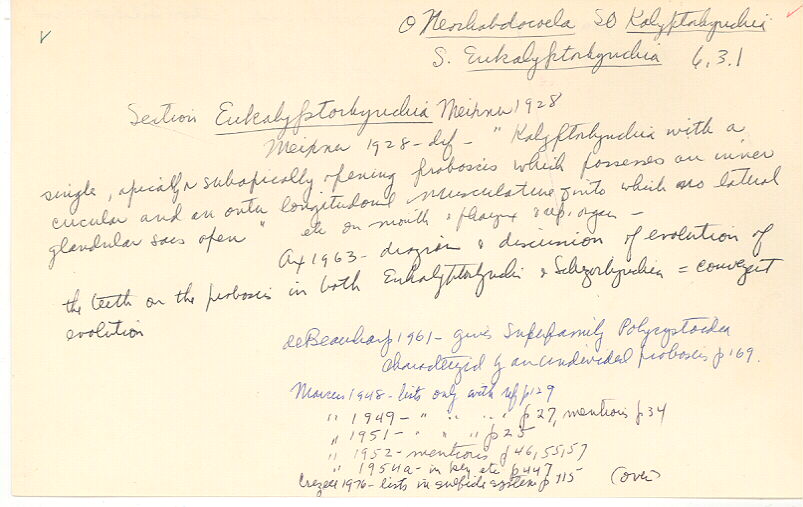 O Neorhabdocoela SO Kalyptorhynchia
S. Eukalyptorhynchia 6.3.1
Section Eukalyptorhynchia Meixner 1928
Meixner 1928 - def - " Kalyptorhynchia with a
single, apically or subapically opening proboscis which possesses an inner
circular and an outer longitudonal musculature & into which no lateral
glandular sacs open " etc on mouth & pharynx & rep. organ -
Ax 1963 - diagram & discussion of evolution of
the teeth on the proboscis in both Eukalyptorhynchia & Schizorhynchia = convergent
evolution
deBeauchamp 1961 - gives Superfamily Polycystoidea
characterized by an undivided proboscis p 169.
Marcus 1948 - lists only with ref p 129
" 1949 - " " " " p 27, mentions p 34
" 1951 - " " " p 25
" 1952 - mentions p 46, 55, 57
" 1954a - in key etc p 447
Crezée 1976 - lists in sulfide system p 115 (over)